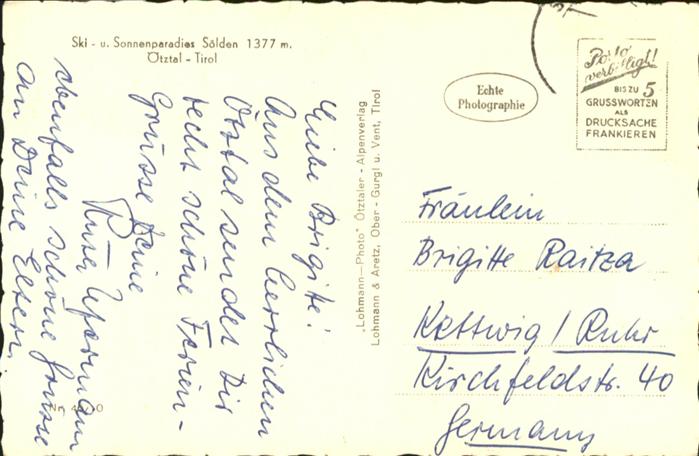 Ski - u. Sonnenparadies Sölden 1377 m.
Ötztal - Tirol
Liebe Brigitte!
Aus dem herrlichen
Ötztal sendet Dir
recht schöne Ferien-
Grüsse Deine
ebenfalls schöne Grüsse
an Deine Eltern.
„Lohmann—Photo" Ötztaler - Alpenverlag
Lohmann & Aretz, Ober - Gurgl u. Vent, Tirol
Echte
Photographie
Porto
verbilligt!
BIS ZU 5
GRUSSWORTEN
ALS
DRUCKSACHE
FRANKIEREN
Fräulein
Brigitte Raitza
Kettwig / Ruhr
Kirchfeldstr. 40
Germany